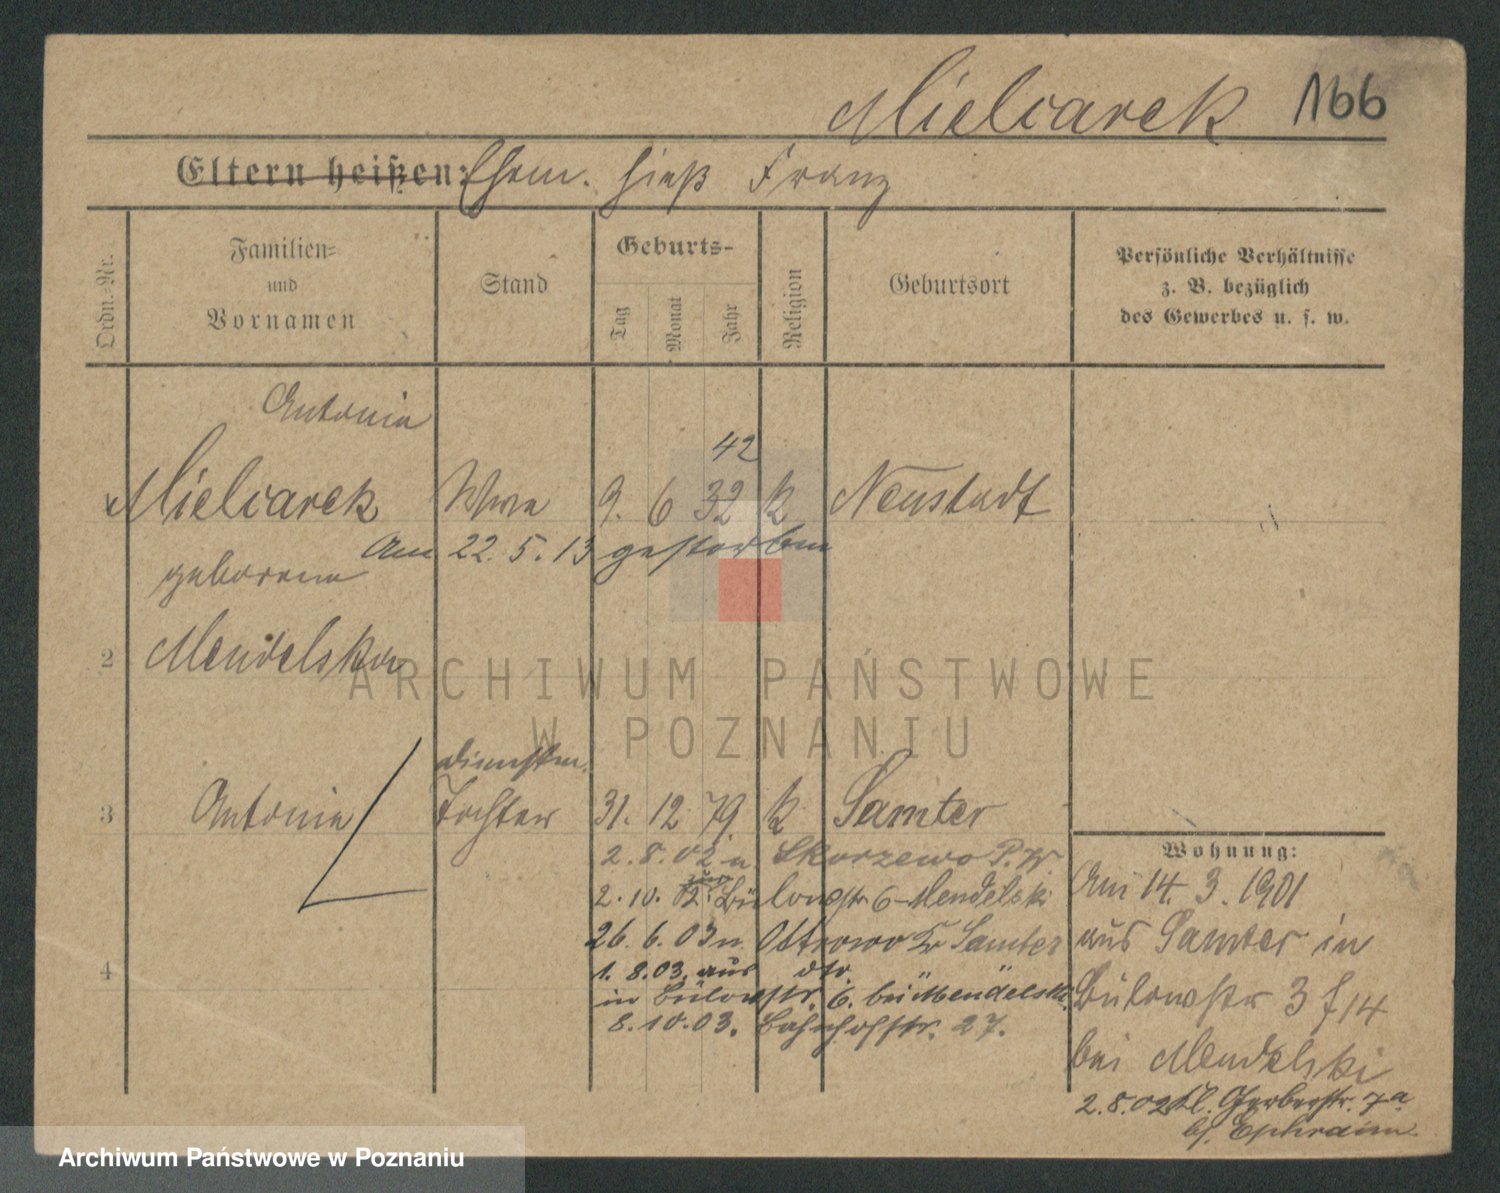 Mielcarek 166
Eltern heißen: Ehem. hieß Franz
Ordn.-Nr.
Familien-
und
Vornamen
Stand
Geburts-
Tag
Monat
Jahr
Religion
Geburtsort
Persönliche Verhältnisse
z. B. bezüglich
des Gewerbes u. s. w.
Antonie
42
Mielcarek Wwe 9. 6 32 k Neustadt
Am 22. 5. 13 gestorben
geborene
2 Mendelska
Dienstm.
3 Antonie Tochter 31. 12 79 k Samter
2. 8. 02 n. Skorzewo P. W
2. 10. 02 Bülowstr 6 Mendelski
26. 6. 03 n. Ottorowo Kr Samter
4
1. 8. 03. aus dto.
in Bülowstr. 6. bei Mendelski
8. 10. 03. Bahnhofstr. 27.
Wohnung:
Am 14. 3. 1901
aus Samter in
Bülowstr 3 f 14
bei Mendelski
2. 8. 02 Kl. Gerberstr. 7a
bj. Ephraim
ARCHIWUM PAŃSTWOWE
W POZNANIU
Archiwum Państwowe w Poznaniu